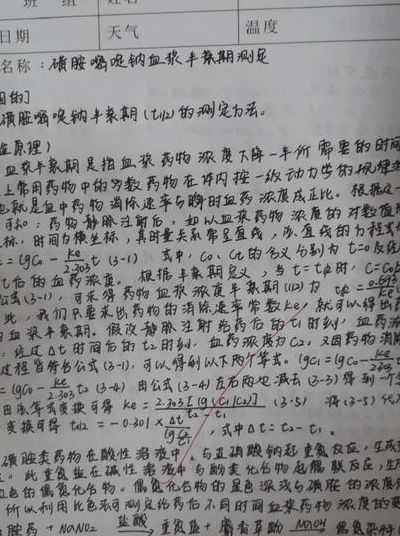 班 组 姓名
日期 天气 温度
名称：磺胺嘧啶钠血浆半衰期测定
目的]
磺胺嘧啶钠半衰期(t1/2)的测定方法。
原理)
血浆半衰期是指血浆药物浓度下降一半所需要的时间
上常用药物中的多数药物在体内按一级动力学的规律消
也就是血中药物消除速率与瞬时血药浓度成正比。根据这一
可知：药物静脉注射后，如以血浆药物浓度的对数值
标，时间为横坐标，其时量关系常呈直线，该直线的方程式
= lgC0 - Ke/2.303 t (3-1) 式中，C0、Ct的含义分别为t=0及
t后的血药浓度。根据半衰期定义，当t=t½时，
公式(3-1)，可求得药物血浆浓度半衰期(1/2)为 t½ = 0.693
此，我们只要求出药物的消除速率常数Ke，就可以得
血浆半衰期。假设静脉注射给药后的t1时刻，血药浓
经过Δt时间后的t2时刻，血药浓度为C2，又因药物消
过程皆符合公式(3-1)，可以得到以下两个等式。lgC1 = lgC0 - Ke/2.303
= lgC0 - Ke/2.303 t2 (3-4) 由公式(3-4)左右两边减去(3-3)得到一个
因此等式变换可得 Ke = 2.303[lg(C1/C2)]/t2-t1 (3-5) 将(3-5)代
变换可得 t1/2 = -0.301 × Δt/lg C2/C1，式中Δt = t2 - t1。
磺胺类药物在酸性溶液中，与亚硝酸钠起重氮反应，生成
。此重氮盐在碱性溶液中与酚类化合物起偶联反应，生
色的偶氮化合物。偶氮化合物的显色深浅与磺胺的浓度
所以利用比色法可测定给药后不同时间血浆药物浓度的
胺药 + NaNO2 盐酸 重氮盐 + 麝香草酚 NaOH 偶氮染料